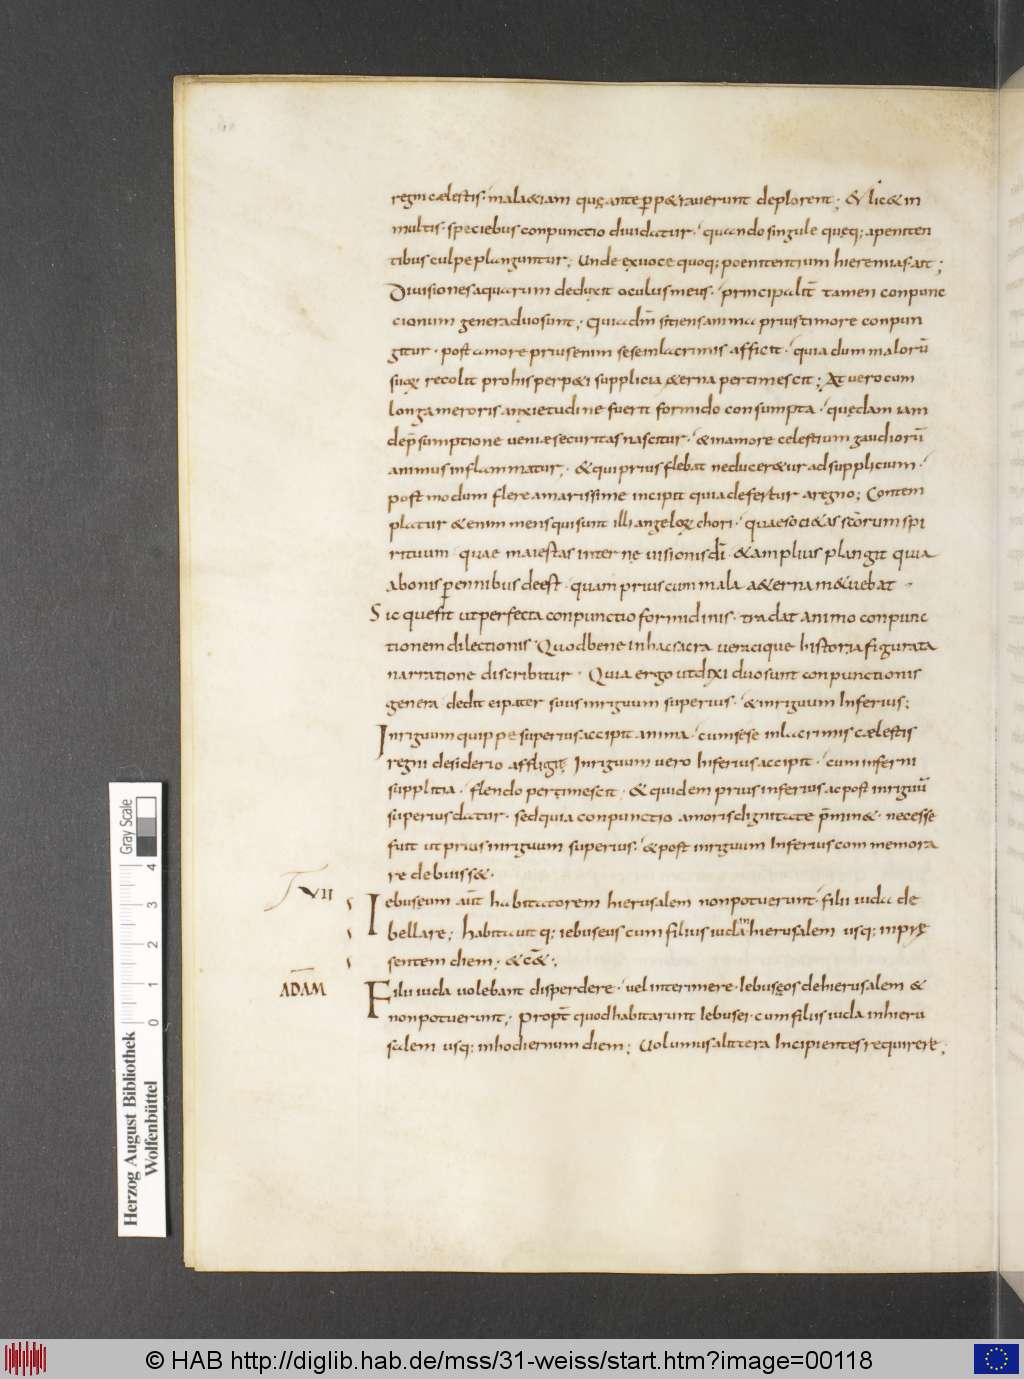 regni cælestis · mala etiam quę ante ꝑpetrauerunt deplorent ; & licet in
multis · speciebus conpunctio diuidatur · quando singule quęq; apeniten
tibus culpe planguntur ; Unde ex uoce quoq; poenitentium hieremias ait ;
Diuisiones aquarum deduxit oculus meus · principalit̄ tamen conpunc
cionum genera duo sunt ; Quia dm̄ sitiens anima prius timore conpun
gitur · post amore prius enim sese in lacrimis afficit · quia dum maloru͞
suoꝝ recolit pro his perpeti supplicia aeterna pertimescit ; At uero cum
longa meroris anxietudine fuerit formido consumpta · quędam iam
de p̄sumptione ueniæ securitas nascitur · & in amore celestium gaudioru͞
animus inflammatur · & qui prius flebat ne duceretur ad supplicium ·
post modum flere amarissime incipit quia defertur a regno ; Contem
platur etenim mens qui sunt illi angeloꝝ chori · quae societas sc̄orum spi
rituum quae maiestas internę uisionis dī · & amplius plangit quia
a bonis ꝑennibus deest · quam prius cum mala aeterna metuebat ·
Sicque fit ut perfecta conpunctio formidinis · tradat animo conpunc
tionem dilectionis · Quod bene in hac sacra ueracique historia figurata
narratione discribitur · Quia ergo ut dixi duo sunt conpunctionis
genera dedit ei pater suus inriguum superius · & inriguum Inferius ;
Inriguum quippe superius accipit anima · cum sese in lacrimis cælestis
regni desiderio affligit Inriguum uero Inferius accipit · cum inferni
supplitia · flendo pertimescit · & quidem prius inferius ac post inriguu͞
superius datur · sed quia conpunctio amoris dignitate p̄minet · necesse
fuit ut prius inriguum superius · & post inriguum Inferius commemora
re debuisset ·
XVII
Iebuseum aut̄ habitatorem hierusalem non potuerunt · filii iuda de
bellare ; habitauitq; iebuseus cum filius iuda in hierusalem usq; in prę
sentem diem ; & cet̄ ;
ADAM
Filii iuda uolebant disperdere · uel interimere · Iebusęos de hierusalem &
non potuerunt ; Propt̄ quod habitarunt Iebusei · cum filiis iuda in hieru
salem usq; in hodiernum diem ; Uolumus a littera Incipientes requirere ;
Gray Scale
4 3 2 1 0
Herzog August Bibliothek
Wolfenbüttel
© HAB http://diglib.hab.de/mss/31-weiss/start.htm?image=00118